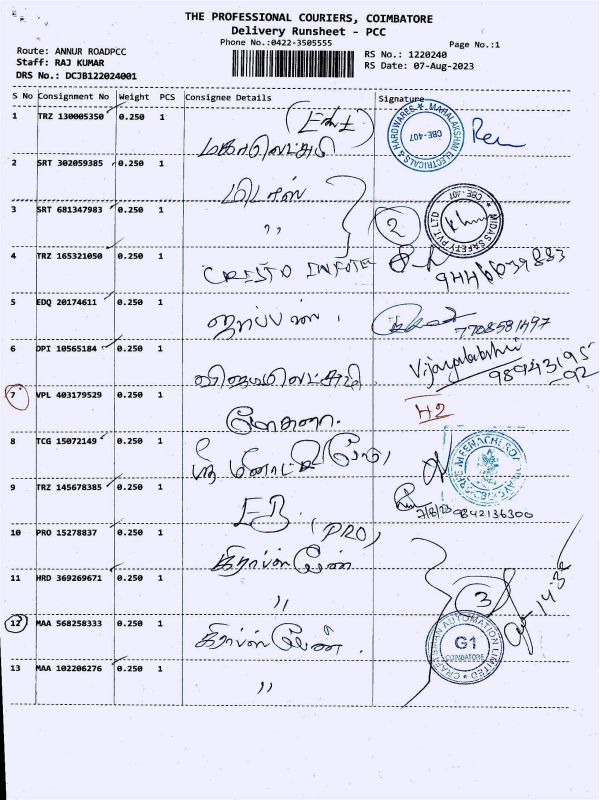 THE PROFESSIONAL COURIERS, COIMBATORE
Delivery Runsheet - PCC
Phone No.:0422-3505555
Page No.:1
Route: ANNUR ROADPCC
Staff: RAJ KUMAR
DRS No.: DCJB122024001
RS No.: 1220240
RS Date: 07-Aug-2023
S No Consignment No Weight PCS Consignee Details Signature
1 TRZ 130005350 0.250 1
மகாலெட்சுமி
MAHALAKSHMI ELECTRICALS & HARDWARES * CBE-407
2 SRT 302059385 0.250 1
மிடாஸ்
3 SRT 681347983 0.250 1 ,,
2
MIDAS SAFETY PVT LTD * CBE-407
4 TRZ 165321050 0.250 1
9446039883
5 EDQ 20174611 0.250 1
7708581497
6 DPI 10565184 0.250 1
விஜயலெட்சுமி
Vijayalakshmi
9894319592
7 VPL 403179529 0.250 1
H2
8 TCG 15072149 0.250 1
ஸ்ரீ மீனாட்சி
9 TRZ 145678385 0.250 1
EB (PRO)
7/8/23 9842136300
10 PRO 15278837 0.250 1
11 HRD 369269671 0.250 1 ,,
3
12 MAA 568258333 0.250 1
CRAFTSMAN AUTOMATION LIMITED
G1
COIMBATORE
13 MAA 102206276 0.250 1 ,,